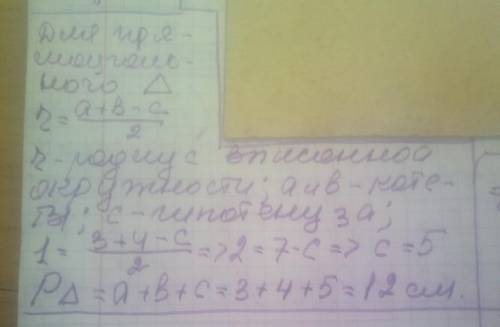 Для пря-
моуголь-
ного △
r = (a+b-c)/2
r-радиус вписанной
окружности; a и b - кате-
ты; c - гипотенуза;
1 = (3+4-c)/2 => 2 = 7-c => c = 5
P△ = a+b+c = 3+4+5 = 12 см.